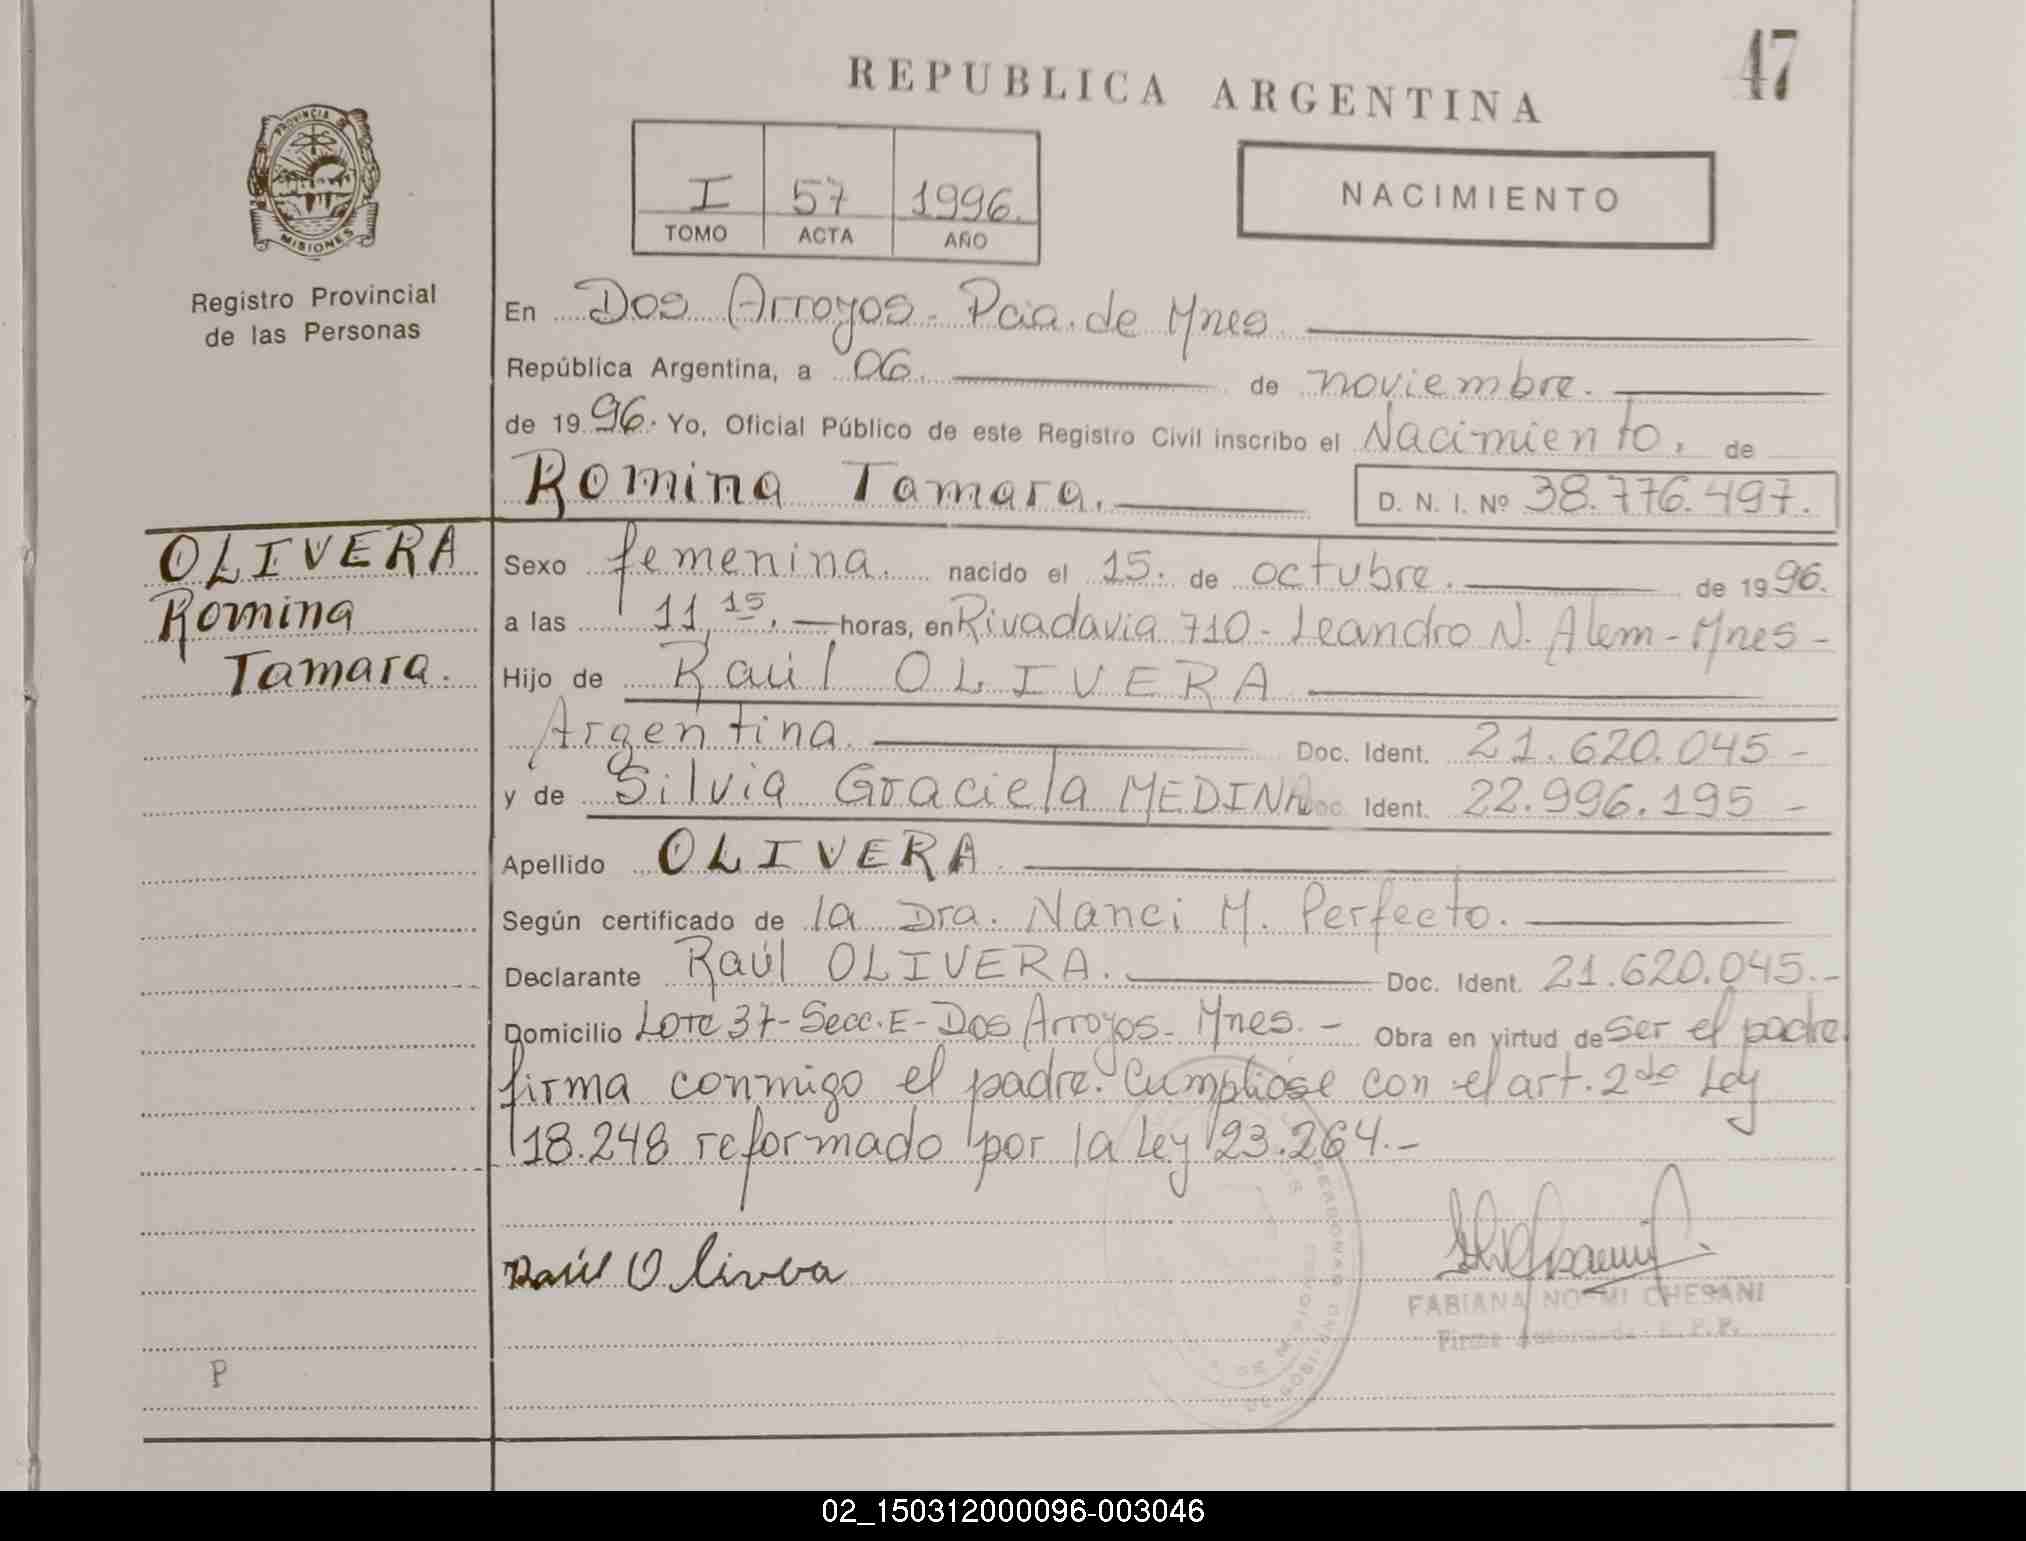 47
REPUBLICA ARGENTINA
PROVINCIA DE
MISIONES
Registro Provincial
de las Personas
I 57 1996.
TOMO ACTA AÑO
NACIMIENTO
En Dos Arroyos - Pcia. de Mnes
República Argentina, a 06. de noviembre.
de 1996. Yo, Oficial Público de este Registro Civil inscribo el Nacimiento, de
Romina Tamara. D. N. I. Nº 38.776.497.
OLIVERA
Romina
Tamara.
Sexo femenina. nacido el 15. de octubre. de 1996.
a las 11,15. horas, en Rivadavia 710 - Leandro N. Alem - Mnes -
Hijo de Raúl OLIVERA
Argentina. Doc. Ident. 21.620.045 -
y de Silvia Graciela MEDINA Doc. Ident. 22.996.195 -
Apellido OLIVERA
Según certificado de la Dra. Nanci M. Perfecto.
Declarante Raúl OLIVERA. Doc. Ident. 21.620.045.-
Domicilio Lote 37 - Secc. E - Dos Arroyos - Mnes. - Obra en virtud de ser el padre
firma conmigo el padre. Cumplióse con el art. 2do Ley
18.248 reformado por la Ley 23.264.-
Raúl Olivera
FABIANA NOEMI CHESANI
P
02_150312000096-003046